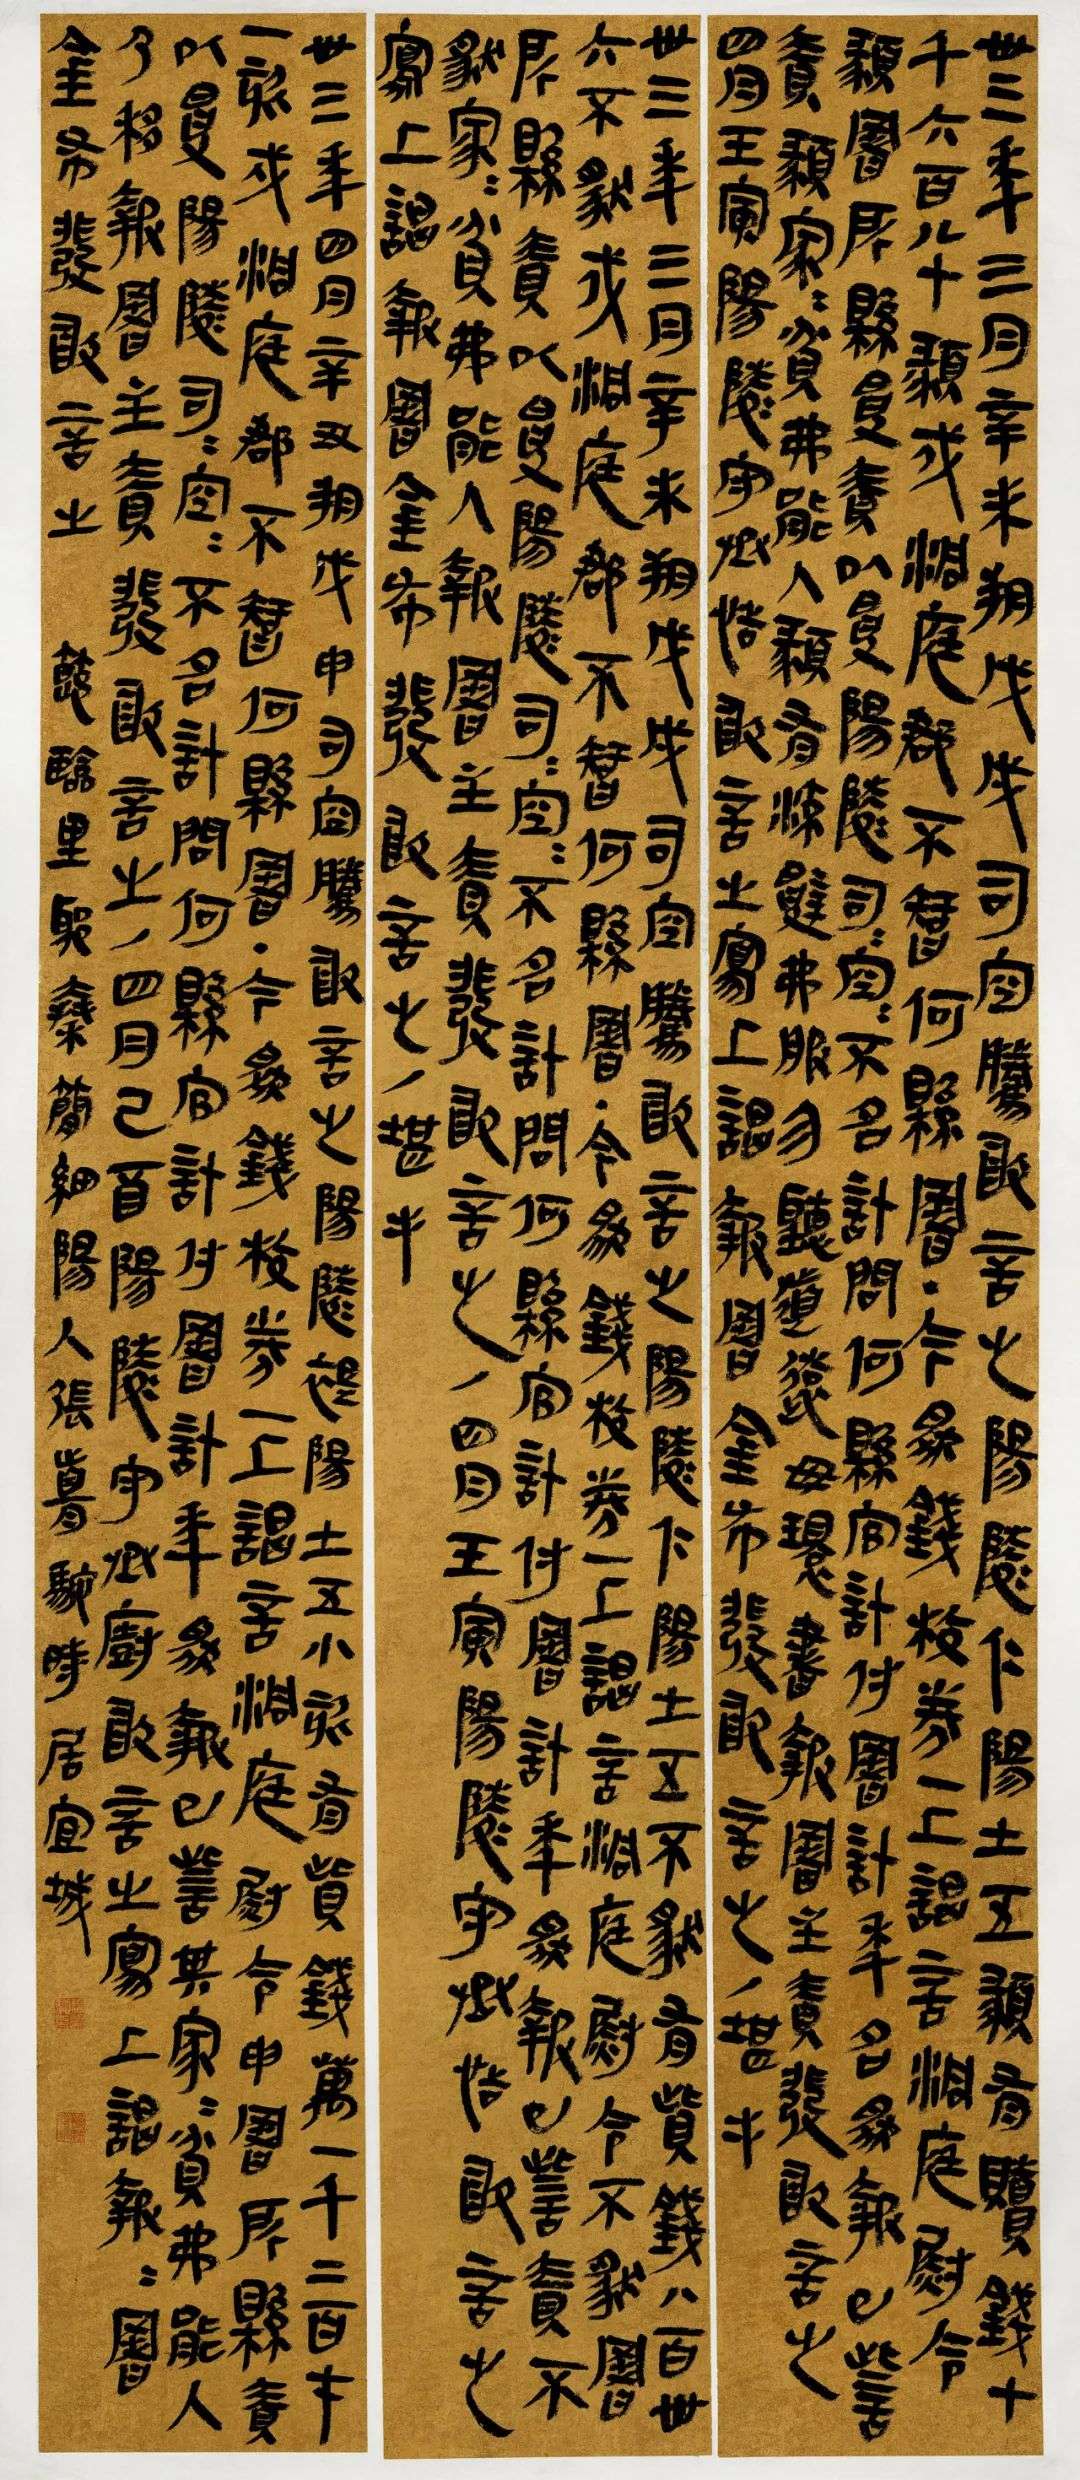 卅三年三月辛未朔戊戌司空騰敢言之陽陵仁陽士五頯有贖錢七
千六百八十頯戍洞庭郡不智何縣署·今為錢校券一上謁言洞庭尉令
頯署所縣受責以受陽陵司=空=不名計問何縣官計付署計年名為報已訾
責頯家=貧弗能入頯有流辭弗服勿聽道遠毋環書報署主責發敢言之
四月壬寅陽陵守丞恬敢言之寫上謁報署金布發敢言之/堪手
卅三年三月辛未朔戊戌司空騰敢言之陽陵仁陽士五不豺有貲錢八百卅
六不豺戍洞庭郡不智何縣署·今為錢校券一上謁言洞庭尉令不豺署
所縣責以受陽陵司=空=不名計問何縣官計付署計年為報已訾責不
豺家=貧弗能入報署主責發敢言之/四月壬寅陽陵守丞恬敢言之
寫上謁報署金布發敢言之/堪手
卅三年四月辛丑朔戊申司空騰敢言之陽陵褆陽士五小欬有貲錢萬一千二百七十
一欬戍洞庭郡不智何縣署·今為錢校券一上謁言洞庭尉令申署所縣責
以受陽陵司=空=不名計問何縣官計付署計年為報已訾其家=貧弗能入
乃移報署主責發敢言之/四月己酉陽陵守丞廚敢言之寫上謁報=署
金布發敢言之 臨里耶秦簡細陽人張 時居宜城